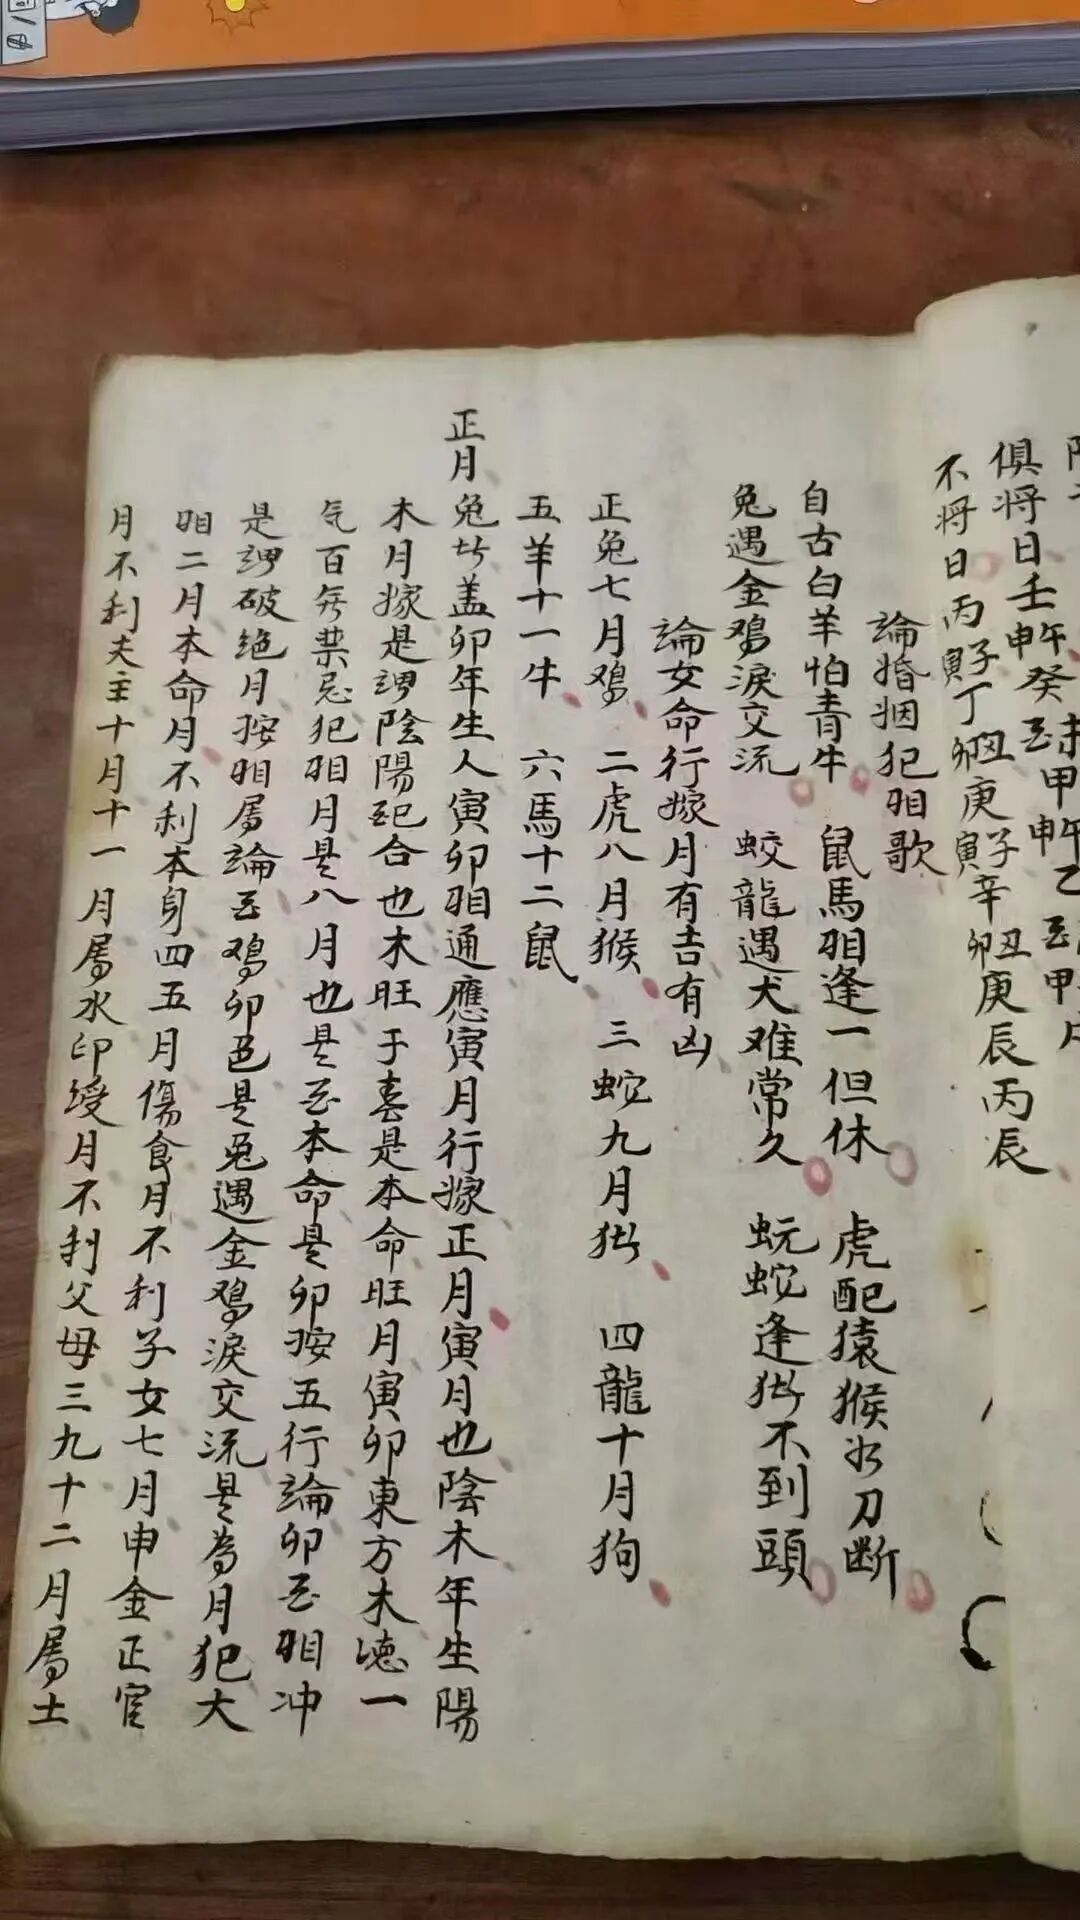 俱将日壬申午癸
不将日丙寅子丁卯丑庚寅子辛卯丑庚辰丙辰
論婚姻犯相歌
自古白羊怕青牛 鼠馬相逢一但休 虎配猿猴如刀断
兔遇金鷄淚交流 蛟龍遇犬难常久 蚖蛇逢猪不到頭
論女命行嫁月有吉有凶
正兔七月鷄 二虎八月猴 三蛇九月猪 四龍十月狗
五羊十一牛 六馬十二鼠
正月兔者盖卯年生人寅卯相通應寅月行嫁正月寅月也陰木年生陽
木月嫁是謂陰陽配合也木旺于春是本命旺月寅卯東方木德一
气百無禁忌犯相月是八月也是酉本命是卯按五行論卯酉相冲
是謂破绝月按相属論酉鷄卯兔是兔遇金鷄淚交流是為月犯大
相二月本命月不利本身四五月傷食月不利子女七月申金正官
月不利夫主十月十一月属水印绶月不利父母三九十二月属土